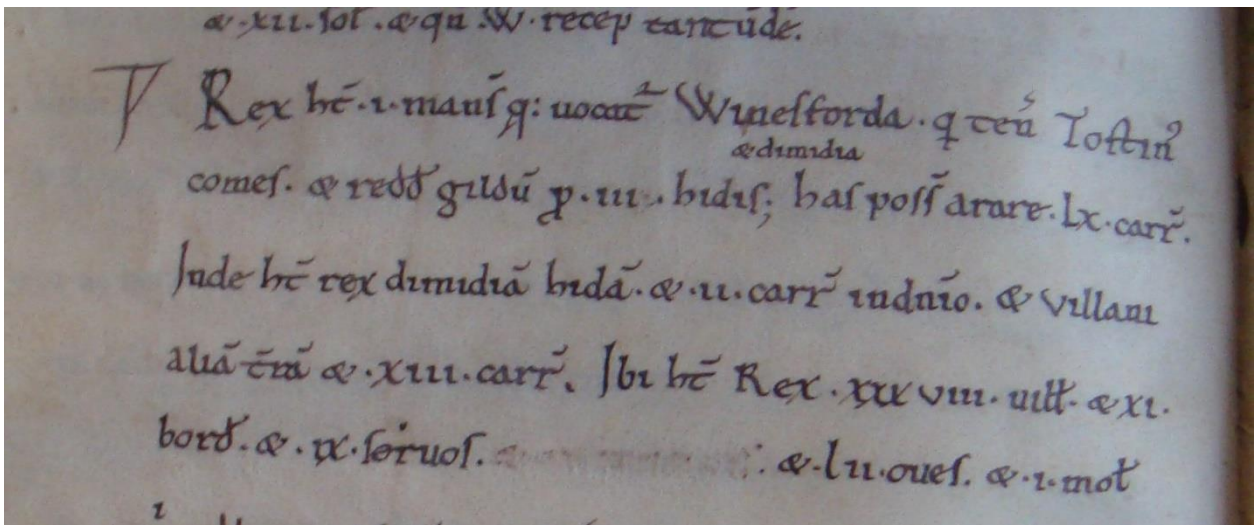 & .xii. sol. & qñ .W. recep̄ tantūdē.
Rex ht̄ .i. mansq̄: uocat̄ Winesforda. q̄ ten̄ Tostin᷒
& dimidia
comes. & redd̄ gildū p̲ .iii. hidis; has poss̄ arare .lx. carr̄.
Inde ht̄ rex dimidiā hidā. & .ii. carr̄ indnīo. & villani
aliā t̄rā & .xiii. carr̄. Ibi ht̄ Rex .xxxviii. uill̄. & xi.
bord̄. & .ix. seruos. & .lii. oues. & .i. mol̄